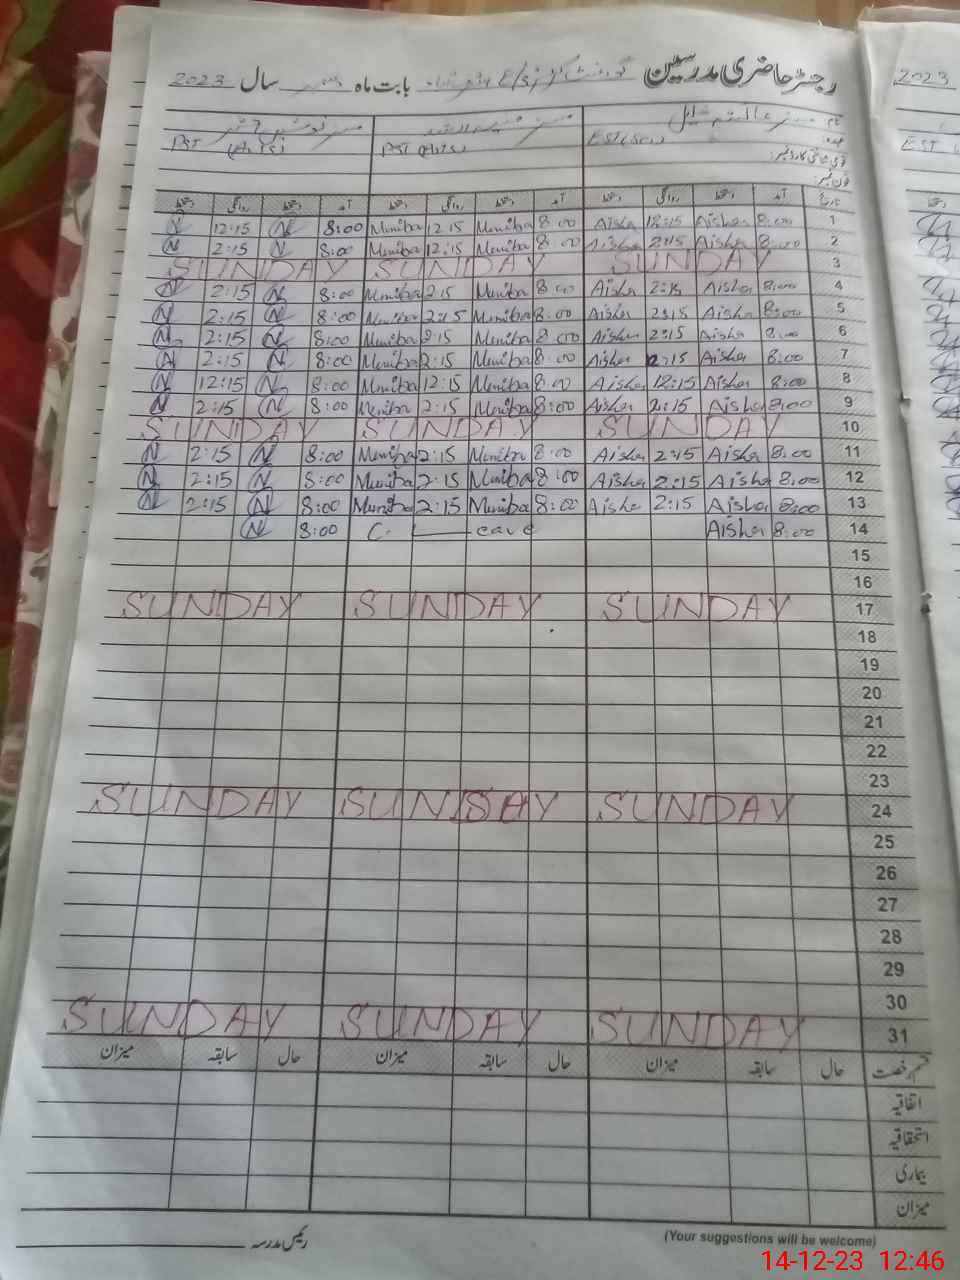 رجسٹر حاضری مدرسین گورنمنٹ گرلز E/S بابت ماہ دسمبر سال 2023
نام مسز
EST(Sci) PST (Arts) PST (Arts)
عہدہ
قومی شناختی کارڈ نمبر:
فون نمبر:
تاریخ آمد دستخط روانگی دستخط آمد دستخط روانگی دستخط آمد دستخط روانگی دستخط
N 12:15 N 8:00 Muniba 12:15 Muniba 8:00 Aisha 12:15 Aisha 8:00 1
N 2:15 N 8:00 Muniba 12:15 Muniba 8:00 Aisha 2:15 Aisha 8:00 2
SUNDAY SUNDAY SUNDAY 3
N 2:15 N 8:00 Muniba 2:15 Muniba 8:00 Aisha 2:15 Aisha 8:00 4
N 2:15 N 8:00 Muniba 2:15 Muniba 8:00 Aisha 2:15 Aisha 8:00 5
N 2:15 N 8:00 Muniba 2:15 Muniba 8:00 Aisha 2:15 Aisha 8:00 6
N 2:15 N 8:00 Muniba 2:15 Muniba 8:00 Aisha 2:15 Aisha 8:00 7
N 12:15 N 8:00 Muniba 12:15 Muniba 8:00 Aisha 12:15 Aisha 8:00 8
N 2:15 N 8:00 Muniba 2:15 Muniba 8:00 Aisha 2:15 Aisha 8:00 9
SUNDAY SUNDAY SUNDAY 10
N 2:15 N 8:00 Muniba 2:15 Muniba 8:00 Aisha 2:15 Aisha 8:00 11
N 2:15 N 8:00 Muniba 2:15 Muniba 8:00 Aisha 2:15 Aisha 8:00 12
N 2:15 N 8:00 Muniba 2:15 Muniba 8:00 Aisha 2:15 Aisha 8:00 13
N 8:00 C. Leave Aisha 8:00 14
15
16
SUNDAY SUNDAY SUNDAY 17
18
19
20
21
22
23
SUNDAY SUNDAY SUNDAY 24
25
26
27
28
29
30
SUNDAY SUNDAY SUNDAY 31
قسم رخصت حال سابقہ میزان حال سابقہ میزان حال سابقہ میزان
اتفاقیہ
استحقاقیہ
بیماری
میزان
رئیس مدرسہ
(Your suggestions will be welcome)
14-12-23 12:46
2023
EST